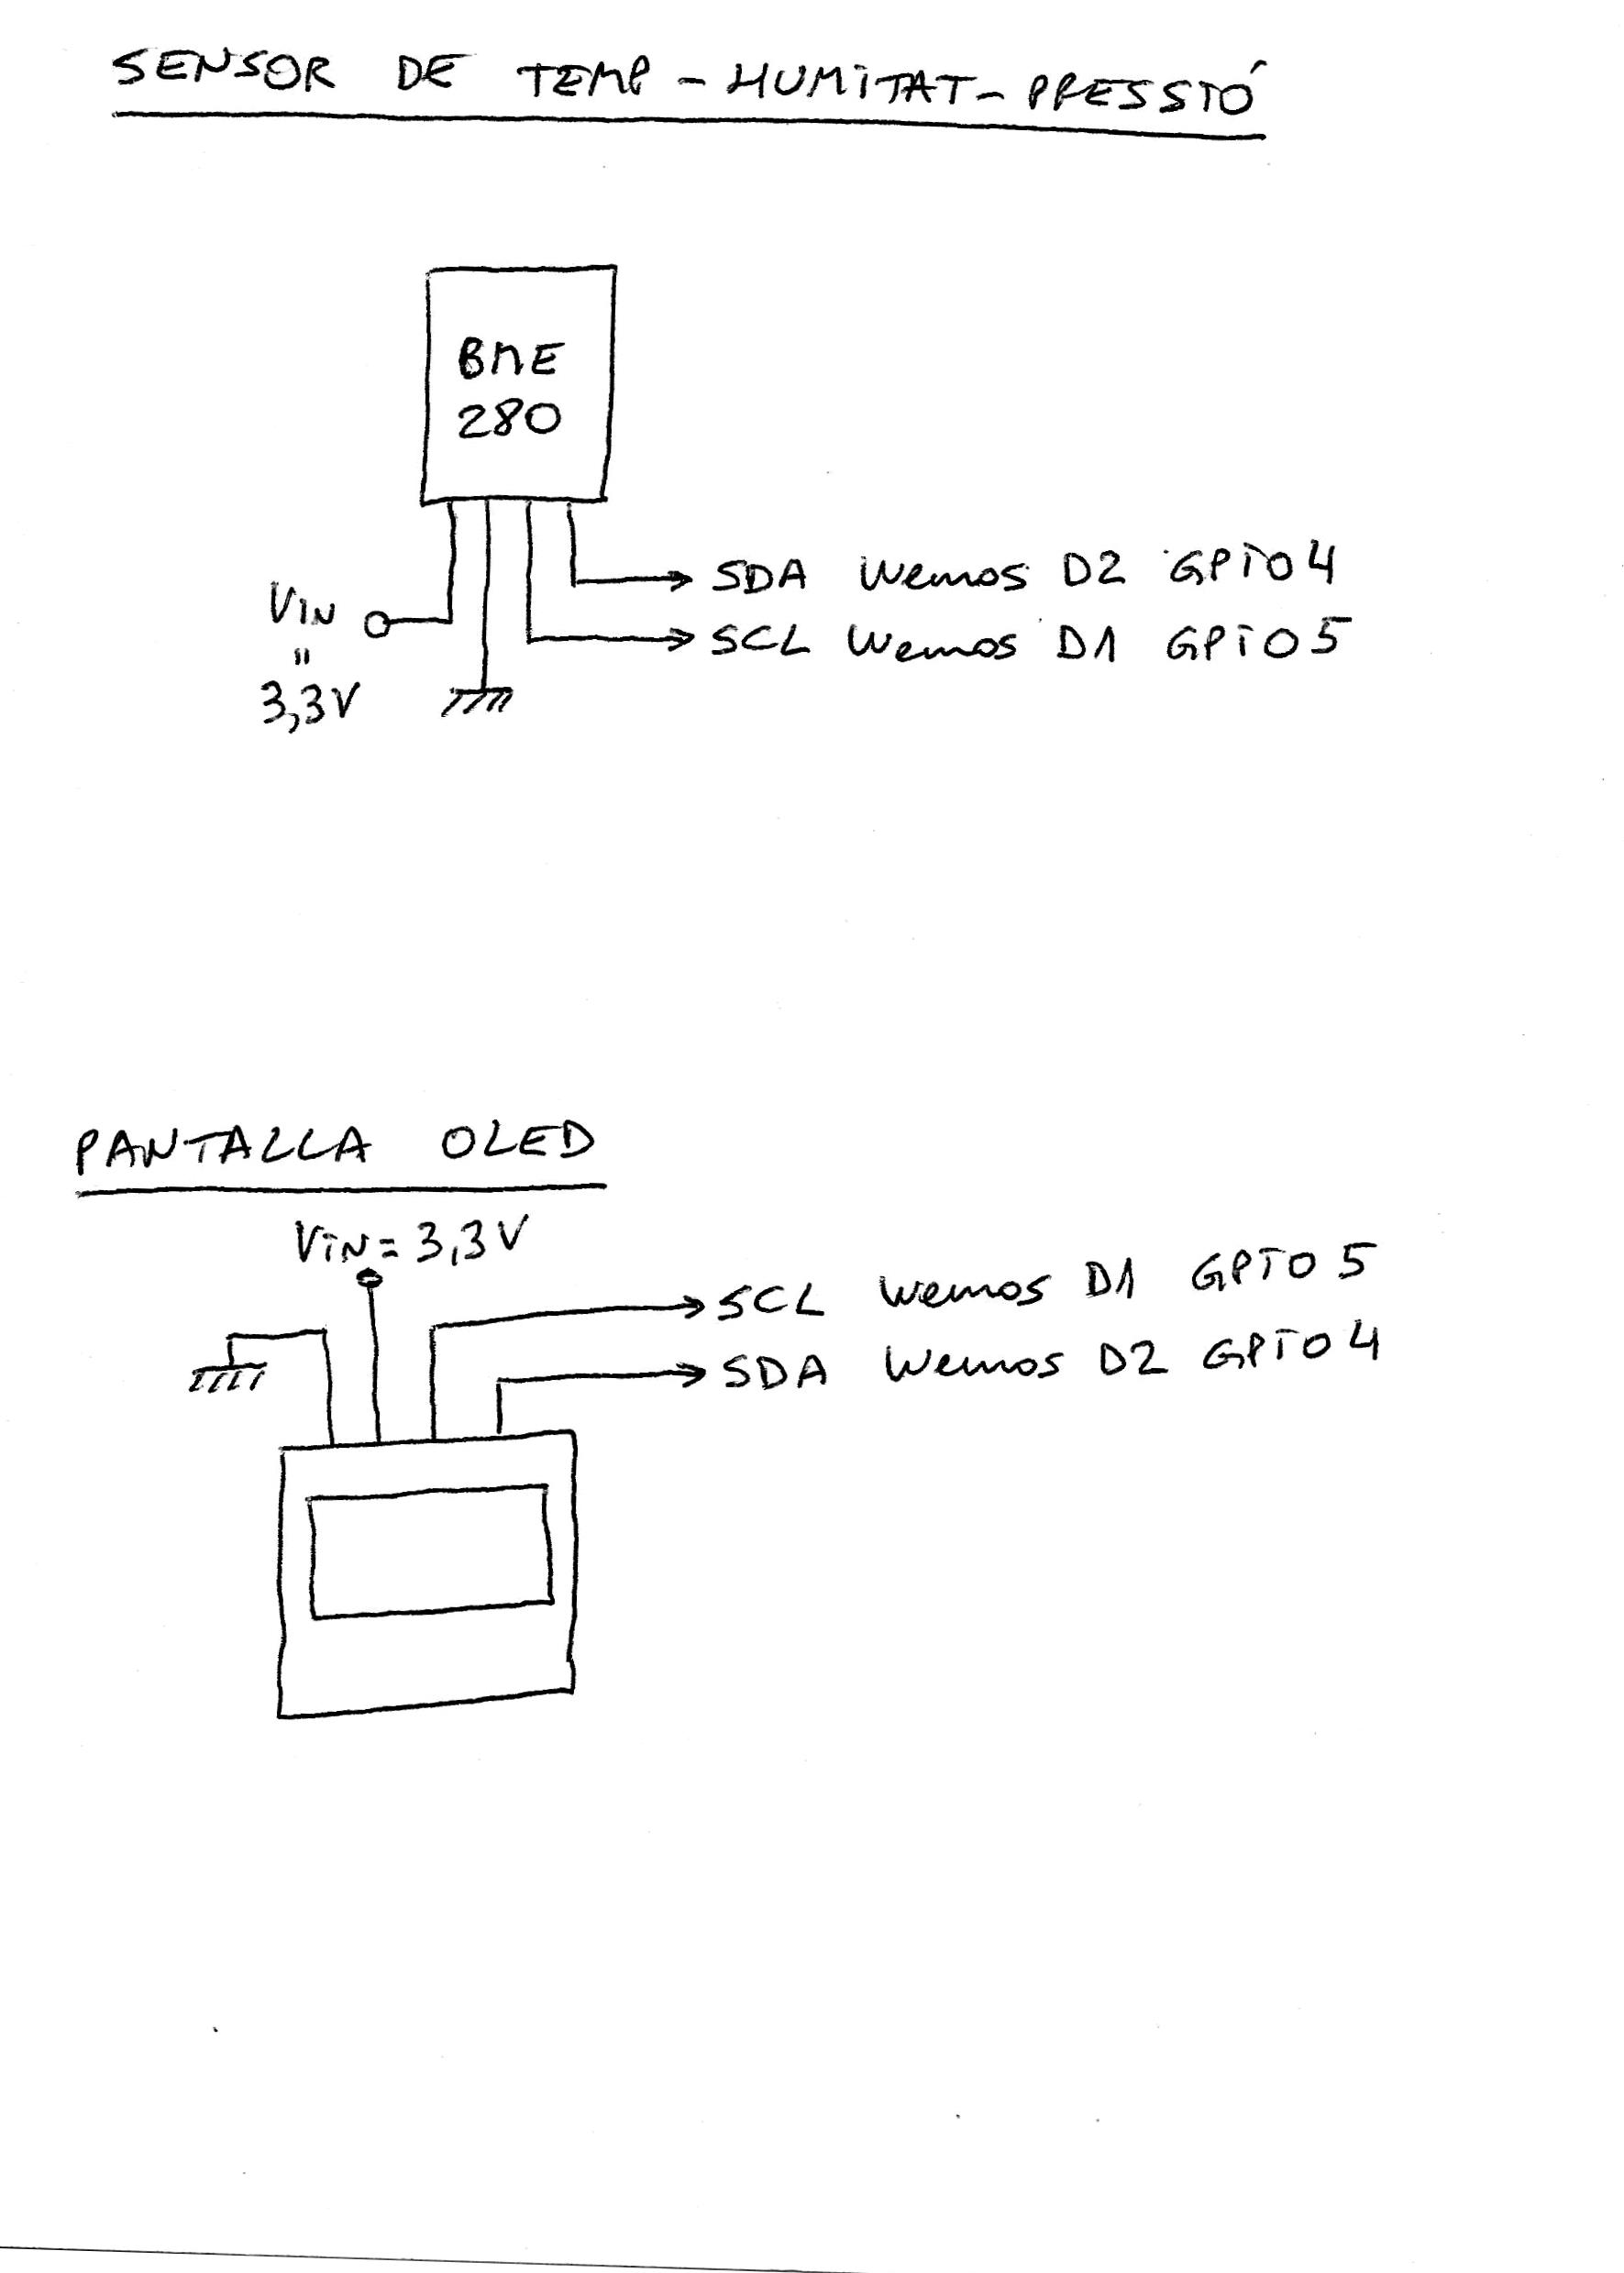 SENSOR DE TEMP - HUMiTAT - PRESSIÓ
BME
280
SDA Wemos D2 GPIO4
VIN
SCL Wemos D1 GPIO5
"
3,3V
PANTALLA OLED
ViN = 3,3V
SCL Wemos D1 GPIO5
SDA Wemos D2 GPIO4